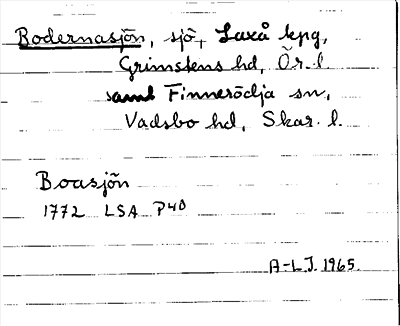 Bodernasjön, sjö, Laxå kpg,
Grimstens hd, Ör. l.
samt Finnerödja sn,
Vadsbo hd, Skar. l.
Boasjön
1772 LSA P40
A-LJ. 1965.